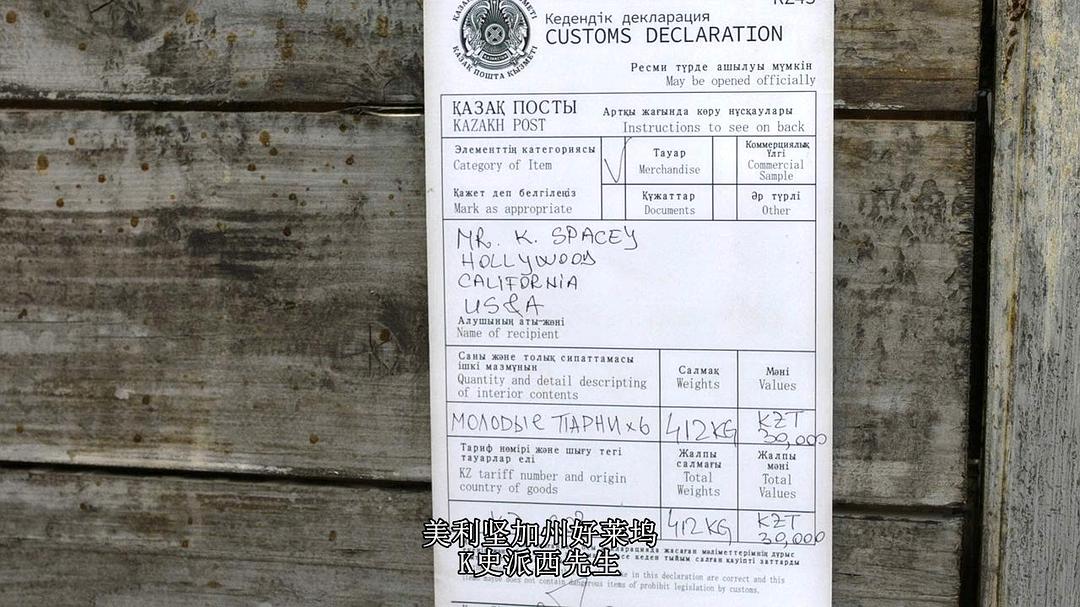 ҚАЗАҚ ПОШТА ҚЫЗМЕТІ
Кедендік декларация
CUSTOMS DECLARATION
Ресми түрде ашылуы мүмкін
May be opened officially
ҚАЗАҚ ПОСТЫ
Артқы жағында көру нұсқаулары
KAZAKH POST
Instructions to see on back
Элементтің категориясы
Category of Item
Тауар
Merchandise
Коммерциялық
Үлгі
Commercial
Sample
Қажет деп белгілеңіз
Mark as appropriate
Құжаттар
Documents
Әр түрлі
Other
MR. K. SPACEY
HOLLYWOOD
CALIFORNIA
US&A
Алушының аты-жөні
Name of recipient
Саны және толық сипаттамасы
ішкі мазмұнын
Quantity and detail descripting
of interior contents
Салмақ
Weights
Мәні
Values
МОЛОДЫЕ ПАРНИ x6
412KG
KZT
30,000
Тариф нөмірі және шығу тегі
тауарлар елі
KZ tariff number and origin
country of goods
Жалпы
салмағы
Total
Weights
Жалпы
мәні
Total
Values
412KG
KZT
30,000
美利坚加州好莱坞
K史派西先生
in this declaration are correct and this
does not contain dangerous items of prohibit legislation by customs.